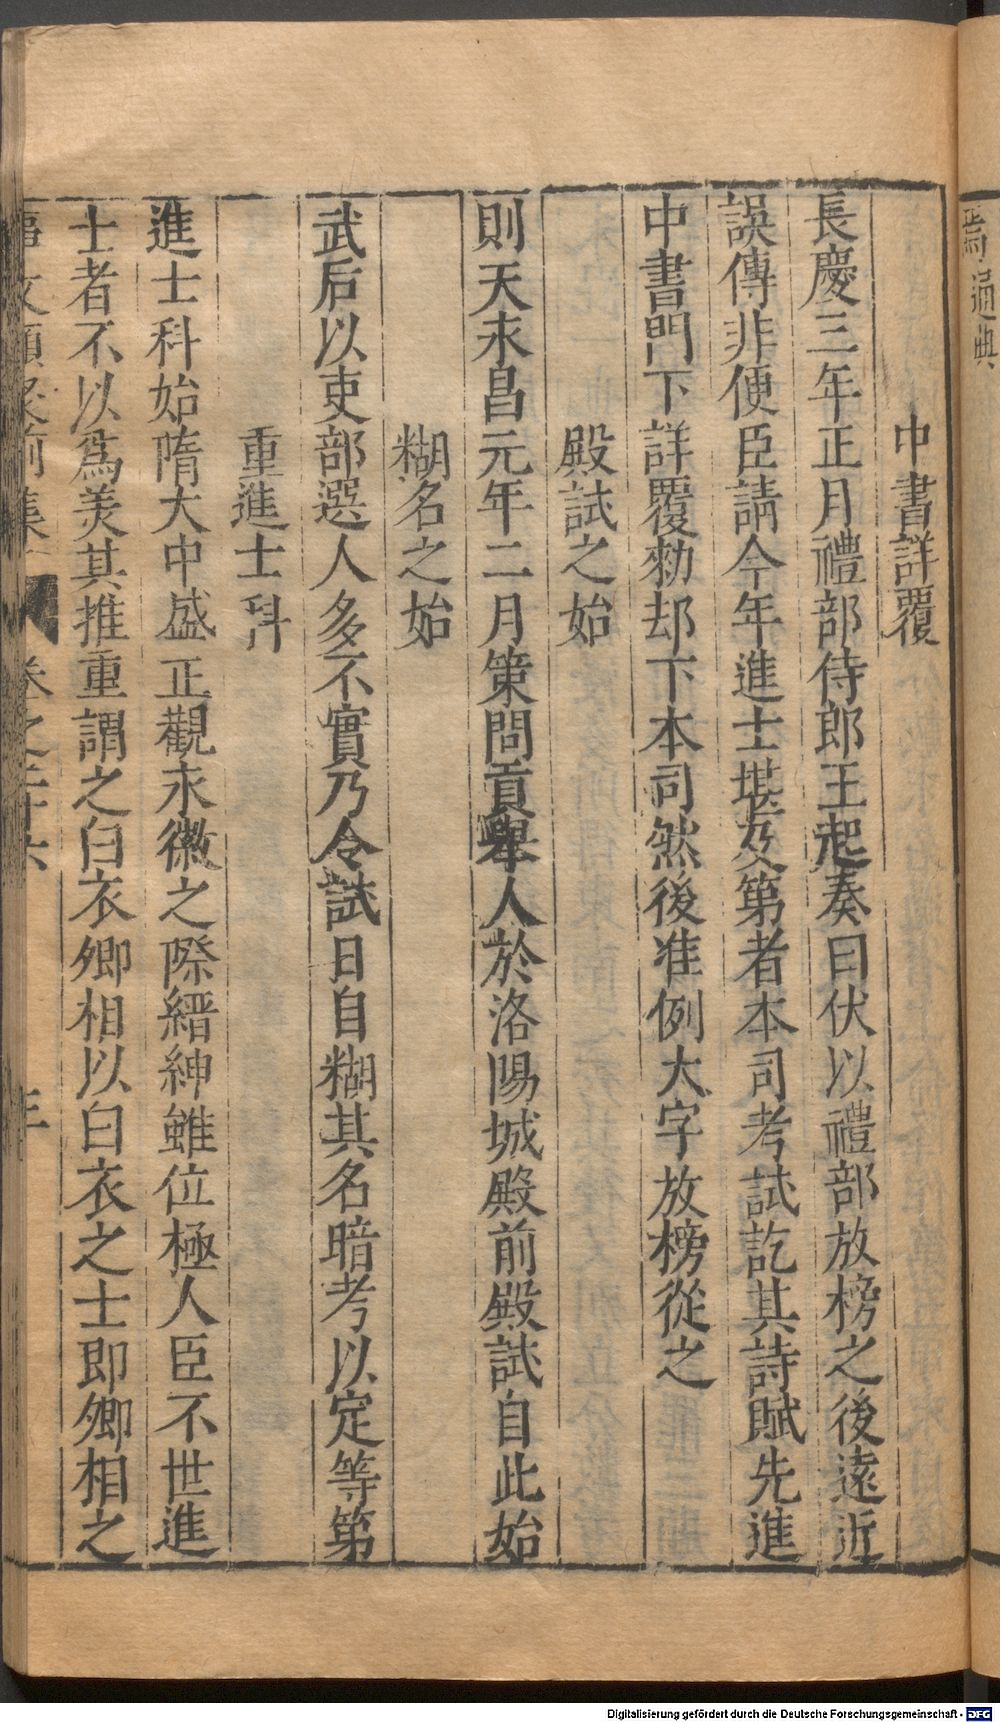 焉通典
中書詳覆
長慶三年正月禮部侍郎王起奏曰伏以禮部放榜之後遠近
誤傳非便臣請今年進士堪及第者本司考試訖其詩賦先進
中書門下詳覆勑却下本司然後准例大字放榜從之
殿試之始
則天永昌元年二月策問貢舉人於洛陽城殿前殿試自此始
糊名之始
武后以吏部選人多不實乃令試日自糊其名暗考以定等第
重進士科
進士科始隋大中盛正觀永徽之際縉紳雖位極人臣不世進
士者不以爲美其推重謂之白衣卿相以白衣之士即卿相之
事文類聚前集 卷之二十六 三
Digitalisierung gefördert durch die Deutsche Forschungsgemeinschaft - DFG